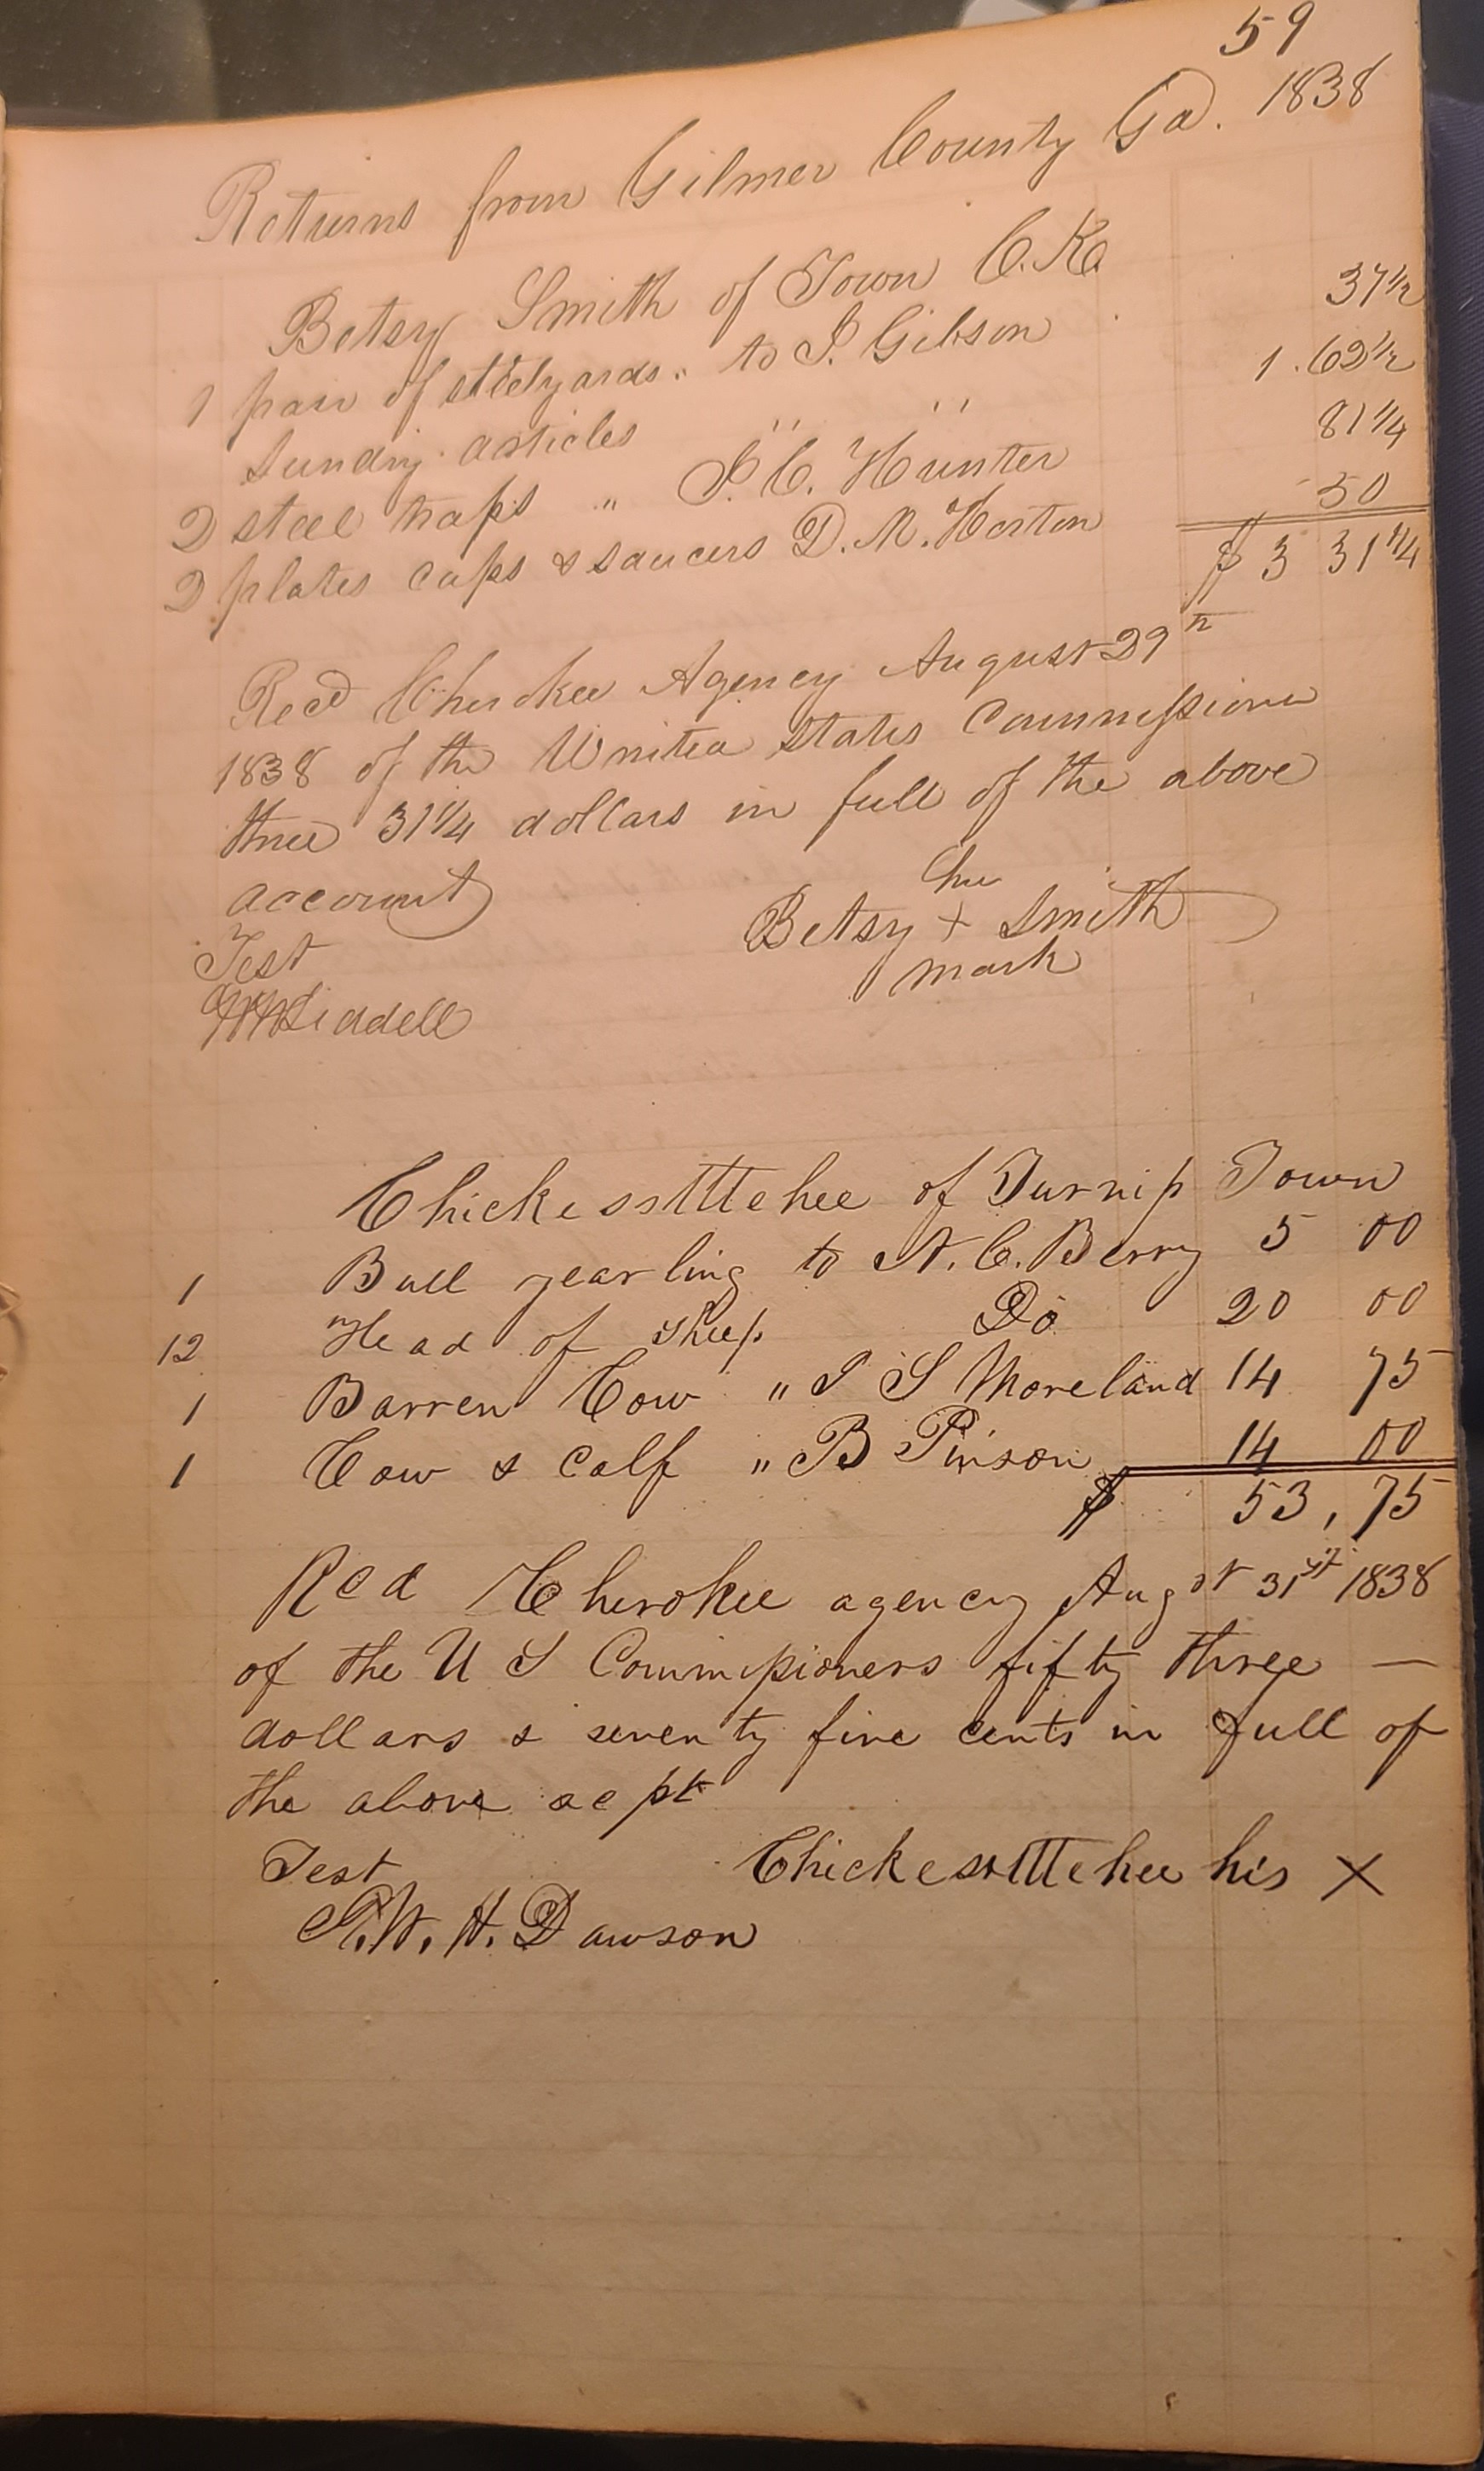 59
Returns from Gilmer County Ga. 1838
Betsy Smith of Town C.K.
1 pair of steelyards " to J. Gibson 37 1/2
Sundry articles " " 1.62 1/2
2 steel traps " J. C. Hunter 81 1/4
2 plates cups & saucers D. M. Horton 50
$ 3 31 1/4
Recd Cherokee Agency August 29th
1838 of the United States Commissioner
three 31 1/4 dollars in full of the above
account
her
Betsy + Smith
mark
Test
Liddell
Chickesstttehee of Turnip Town
1 Bull yearling to N. C. Berry 5 00
12 Head of Sheep Do 20 00
1 Barren Cow " J S Moreland 14 75
1 Cow & calf " B Pinson 14 00
$ 53,75
Recd Cherokee agency Augst 31st 1838
of the U S Commissioners fifty three —
dollars & seventy five cents in full of
the above acpt
Test Chickesstttehee his X
G. W. H. Dawson